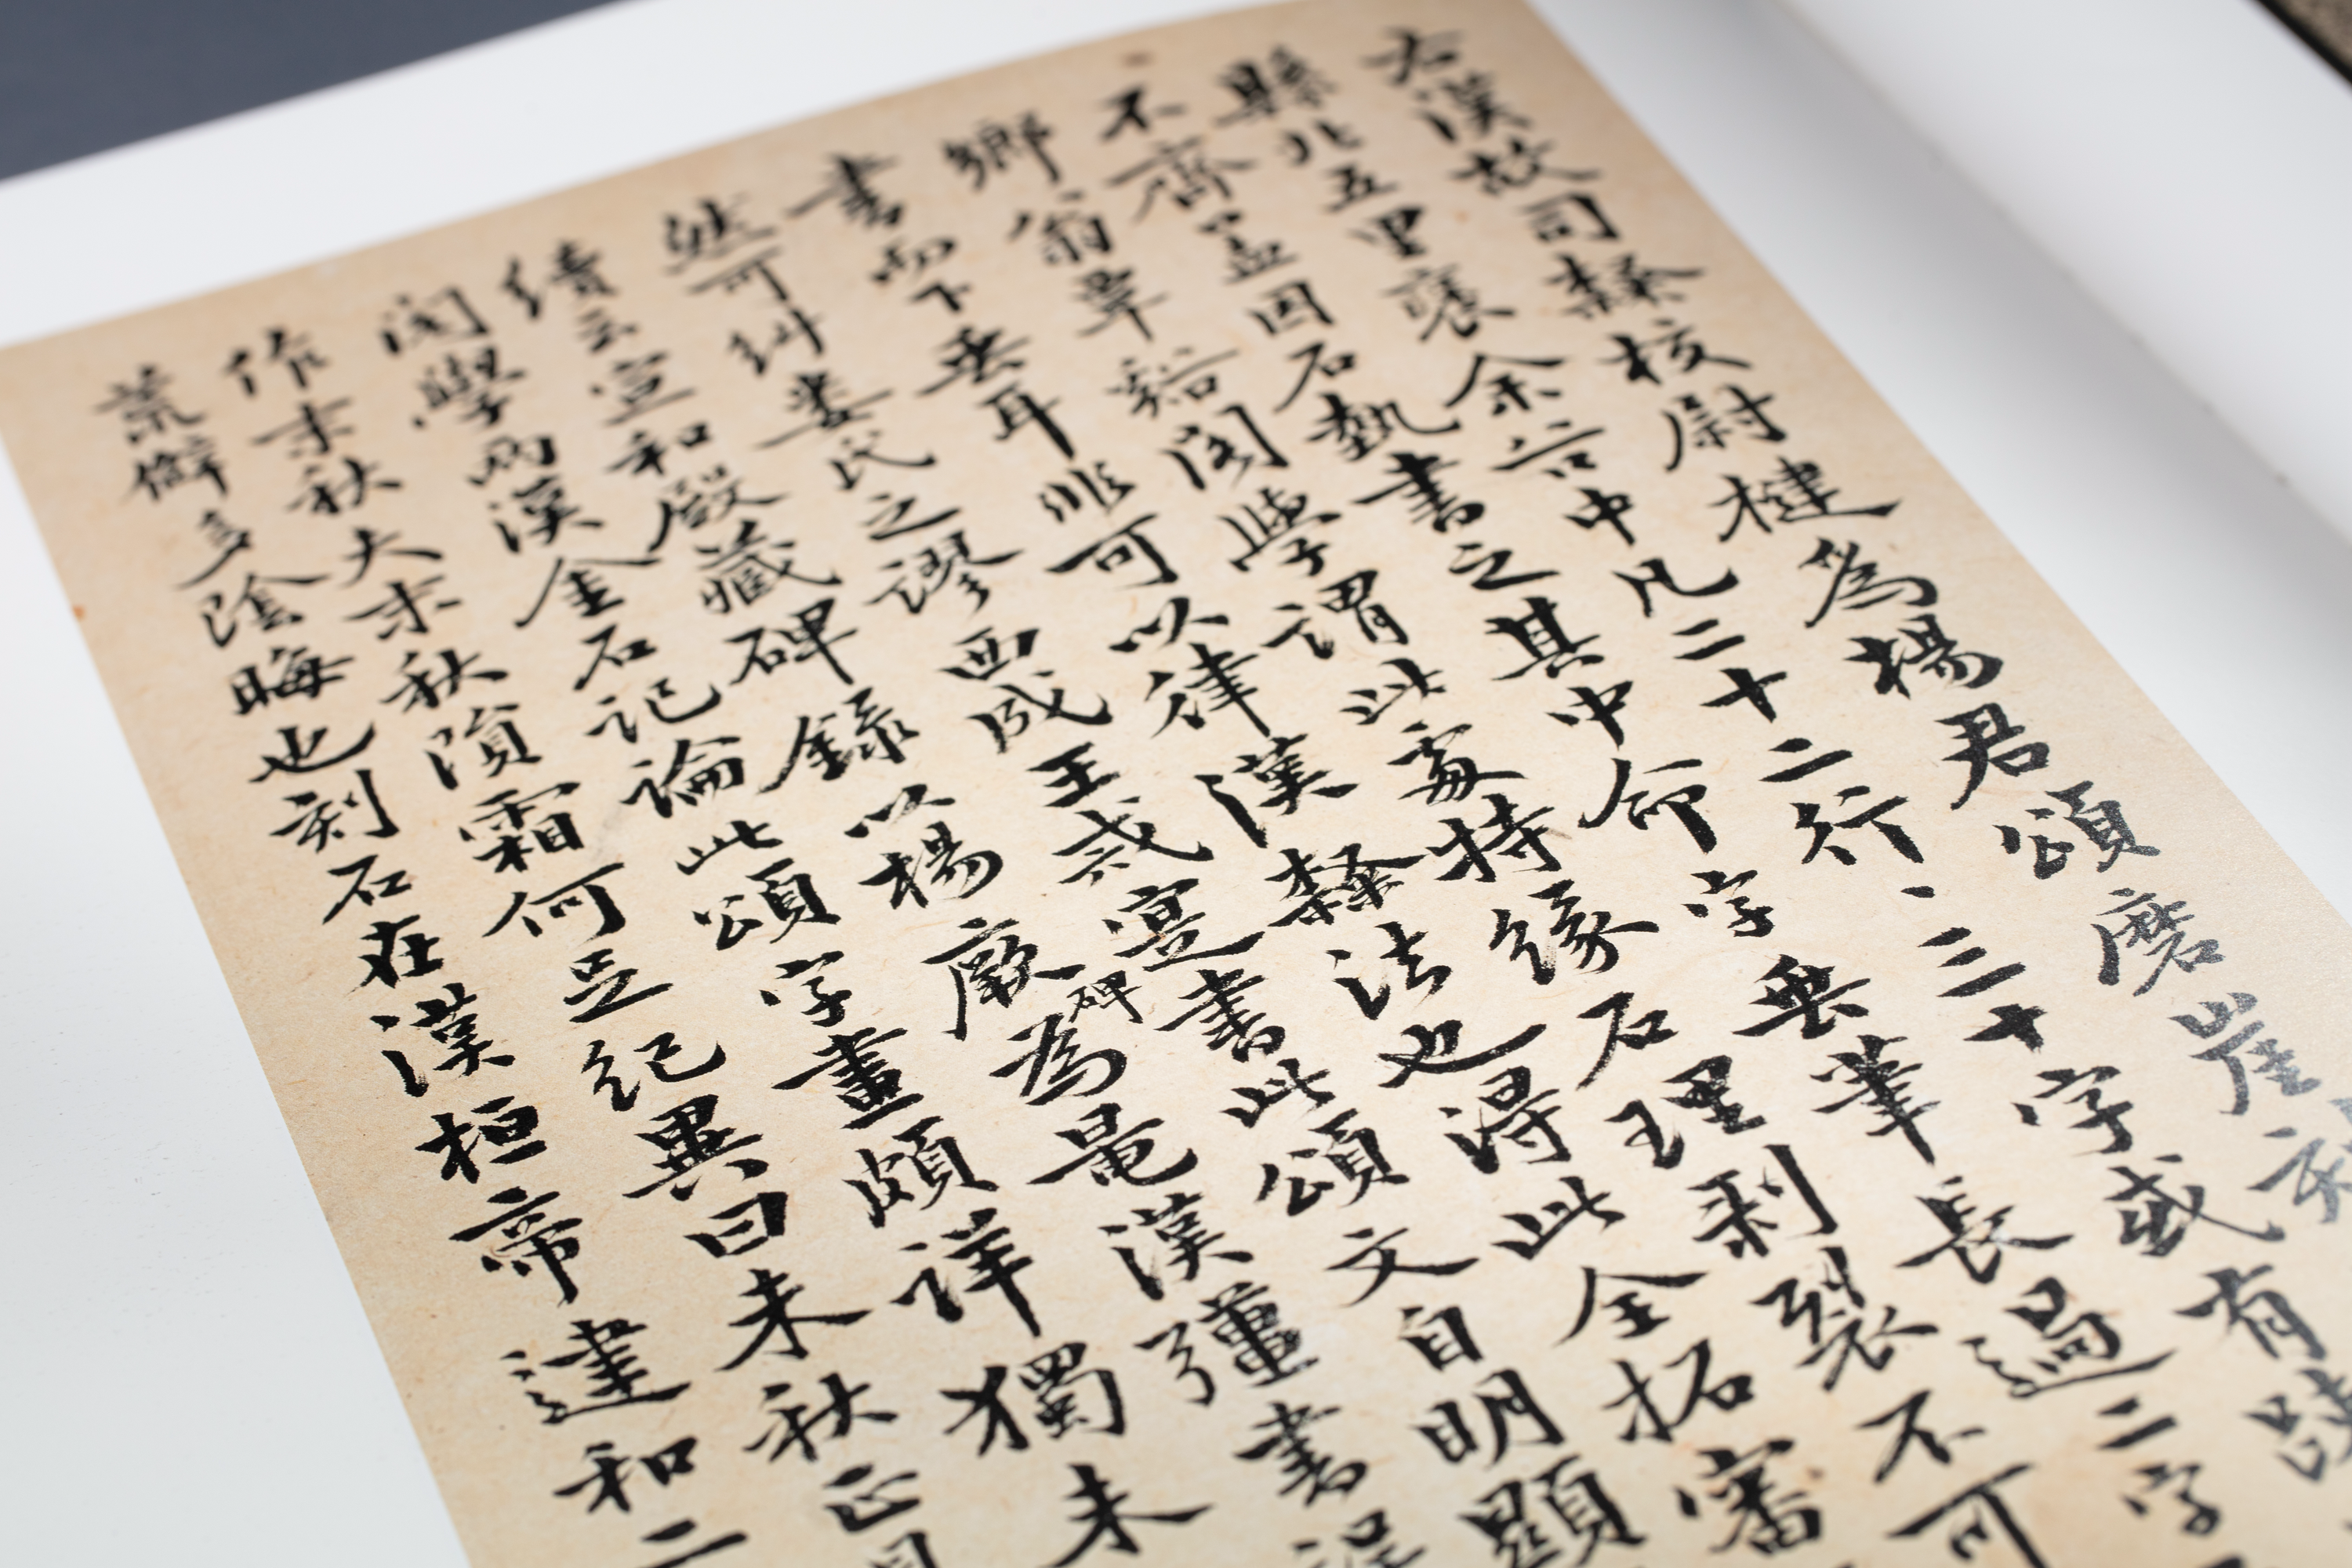 右漢故司隸校尉楗為楊君頌磨崖刻
縣北五里褒余谷中凡二十二行、三十字或有
不齊盖因石埶書之其中命字垂筆長過二字
鄉翁覃谿閣學謂此處特緣石理剥裂不可
書而下垂耳非可以律漢隸法也得此全拓審
然可糾婁氏之謬西成王戒寔書此頌文自明顯
續云宣和殿藏碑錄以楊厥碑為是漢彊書
閣學兩漢金石記論此頌字畫頗詳獨未
作末秋大末秋隕霜何足紀異曰来秋
荒僻多陰晦也刻石在漢桓帝建和二